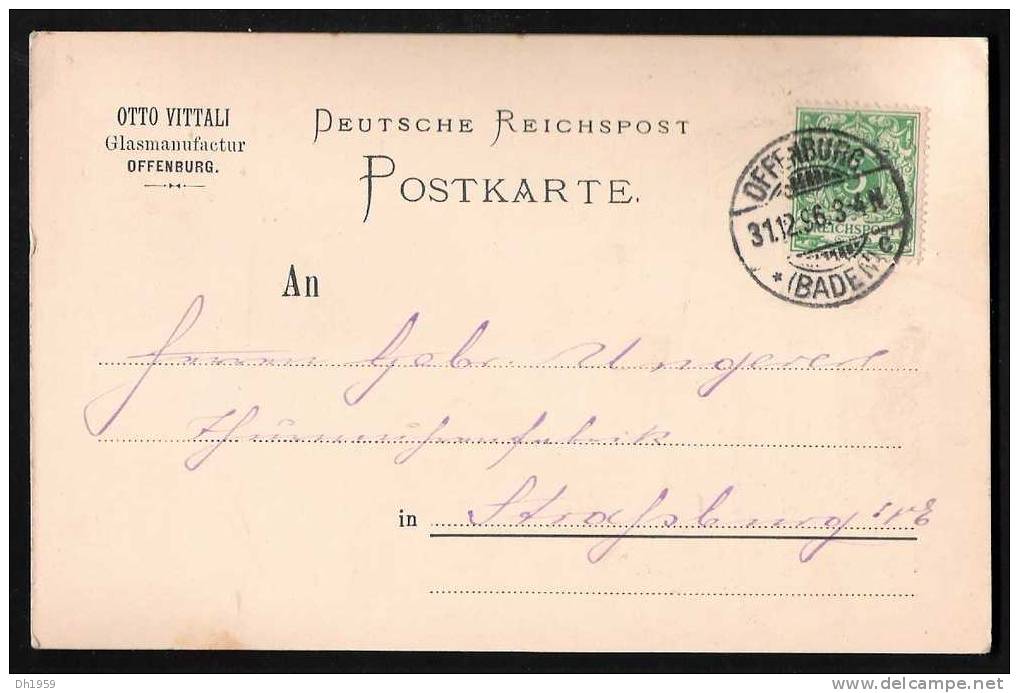 OTTO VITTALI
Glasmanufactur
OFFENBURG.
DEUTSCHE REICHSPOST
POSTKARTE.
OFFENBURG
31.12.96.3-4N.
REICHSPOST
* (BADEN) c
5
An
Herren Gebr. Ungerer
Thurmuhrenfabrik
in Straßburg i/E
Dh1959
delcampe.net